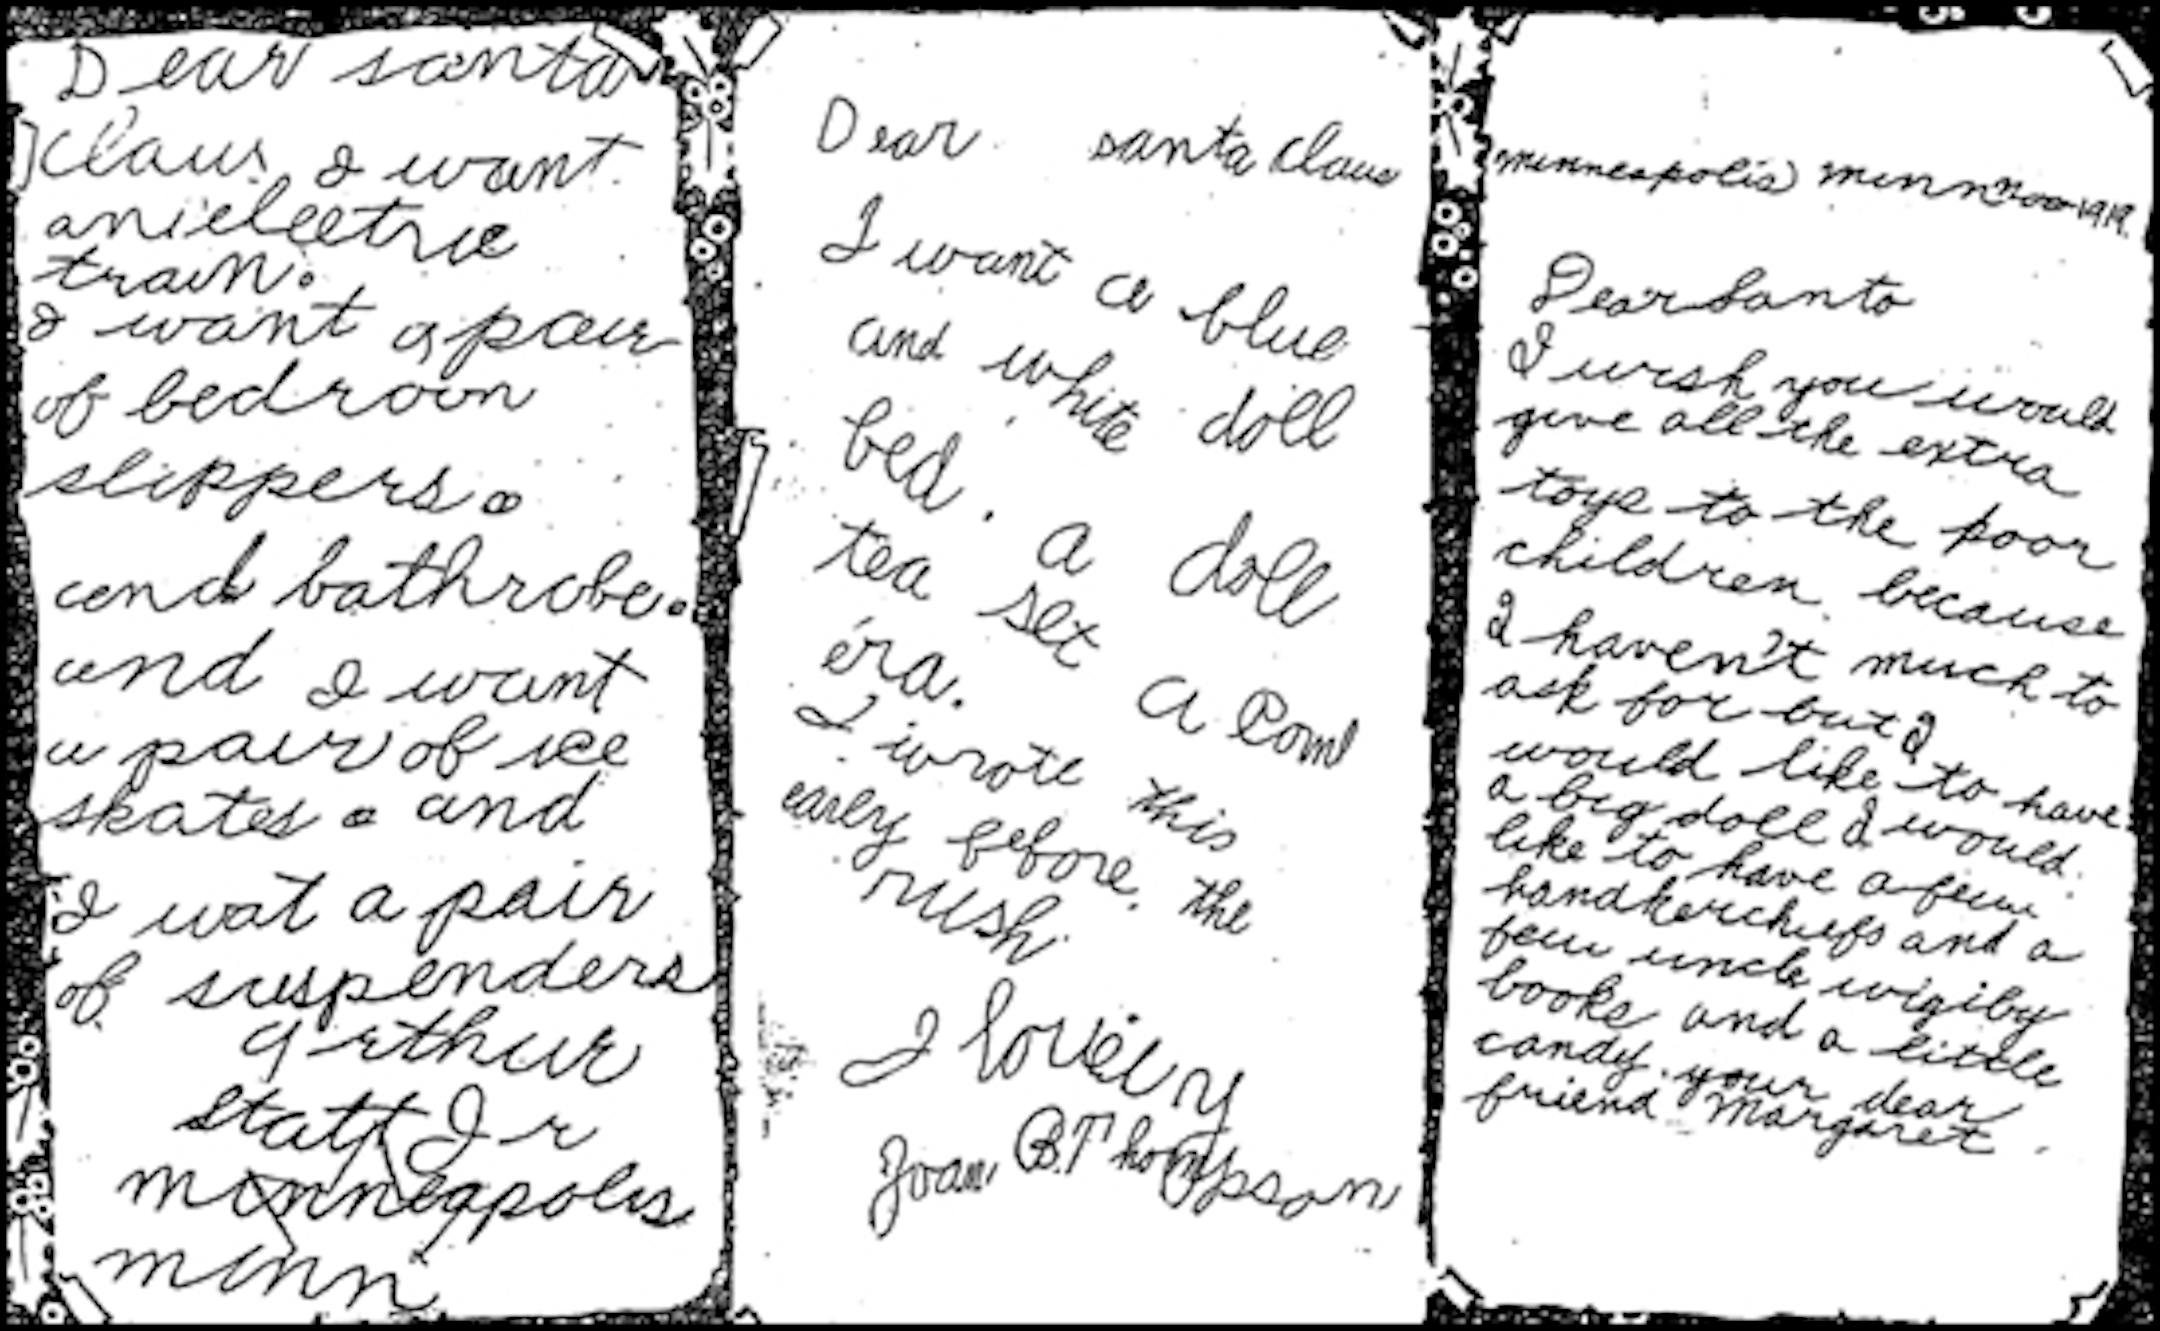 Dear santa
Claus I want
an electric
train.
I want a pair
of bedroon
slippers.
and bathrobe.
and I want
a pair of ice
skates. and
I wat a pair
of suspenders
Arthur
Jr
minneapolis
minn
Dear santa Claus
I want a blue
and white doll
bed. a doll
tea set a
era.
I wrote this
early before the
rush.
I
Joan B. Thompson
minneapolis minn 1919.
Dear Santa
I wish you would
give all the extra
toys to the poor
children because
I haven't much to
ask for but I
would like to have
a big doll I would
like to have a few
handkerchiefs and a
few uncle wigiby
books and a little
candy. your dear
friend Margaret